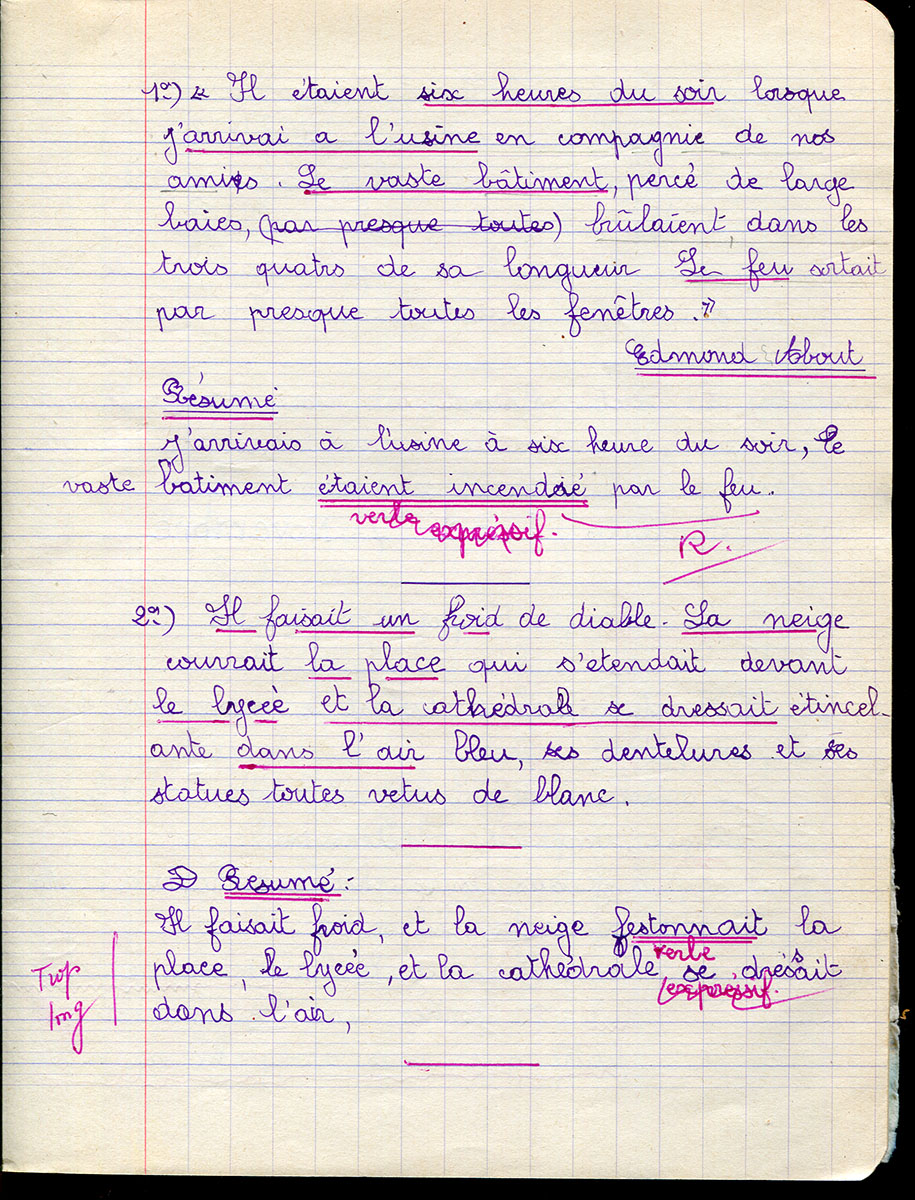 1º) « Il étaient six heures du soir lorsque
j'arrivai a l'usine en compagnie de nos
amies. Le vaste bâtiment, percé de large
baies, (par presque toutes) brûlaient dans les
trois quatrs de sa longueur Le feu sortait
par presque toutes les fenêtres. »
Edmond About
Résumé
J'arrivais à l'usine à six heure du soir, le
vaste bâtiment étaient incendié par le feu.
verbe expréssif.
R.
2º) Il faisait un froid de diable. La neige
couvrait la place qui s'etendait devant
le lyceé et la cathédrale se dressait étincel-
ante dans l'air bleu, ses dentelures et ses
statues toutes vetus de blanc.
Resumé:
Il faisait froid, et la neige festonnait la
verbe
place, le lyceé, et la cathédrale, se drèssait
expressif.
Trop
long
dans l'air,